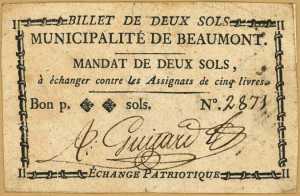 BILLET DE DEUX SOLS
MUNICIPALITÉ DE BEAUMONT.
MANDAT DE DEUX SOLS,
à échanger contre les Assignats de cinq livres
Bon p. ❖ ❖ sols. N.º 2871
Guitard
ÉCHANGE PATRIOTIQUE